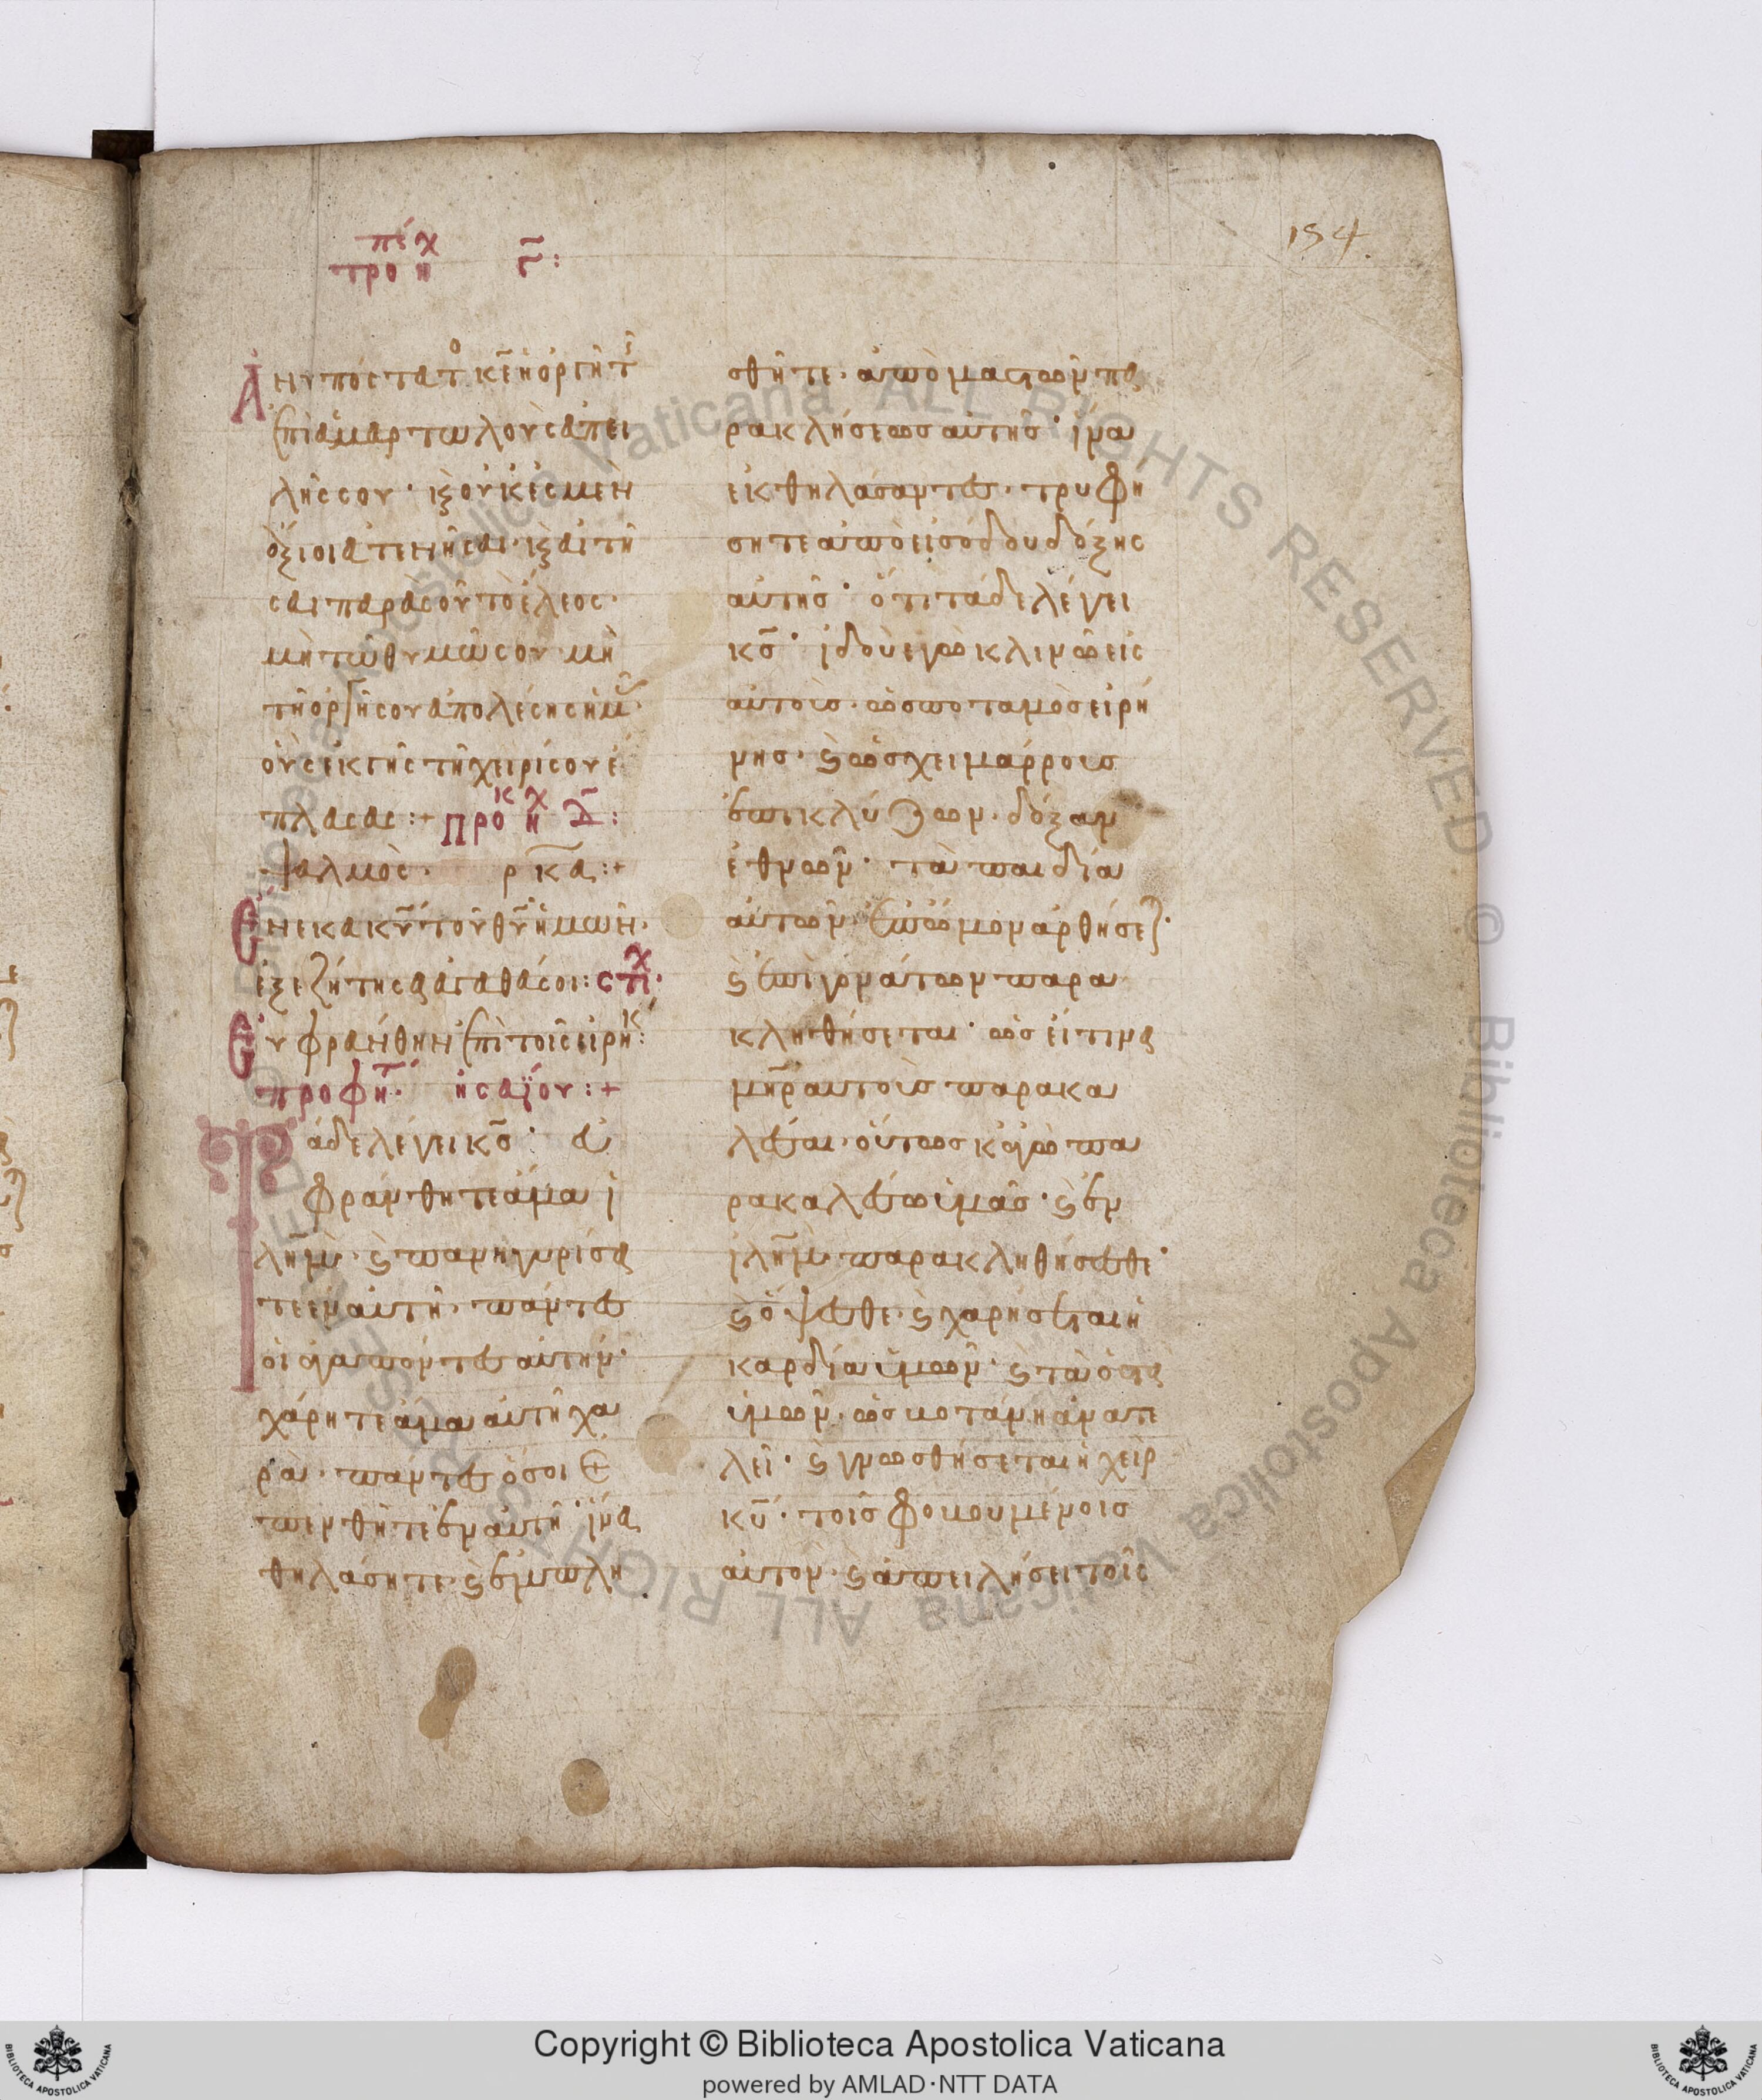 154.
τρο πχ ήχ γ:
Ἀνυπόστατο κε ἡ ὀργὴ τ
ἐπὶ ἁμαρτωλοὺς ἀπει
λῆς σου· κ οὐκ ἐσμὲν
ἄξιοι ἀτενῆσαι· κ αἰτῆ
σαι παρὰ σοῦ τὸ ἔλεος·
μὴ τῶ θυμῶ σου· μὴ
τῆ ὀργῆ σου ἀπολέσης ἡμ
οὓς ἐκ γῆς τῆ χειρί σου ἔ
πλασας:+ Προκ ήχ δ:
ψαλμὸς· ρκα:+
Ἕνεκα κυ τοῦ θυ ἡμῶν·
ἐξεζήτησα ἀγαθά σοι: στιχ·
Εὐφράνθην ἐπὶ τοῖς εἰρηκ:
προφητ· ἠσαΐου:+
Τάδε λέγει κσ· εὐ
φράνθητε ἅμα ἱ
λημ· κ πανηγυρίσα
τε ἐν αὐτῆ· πάντες
οἱ ἀγαπῶντες αὐτήν·
χάρητε ἅμα αὐτῆ χα
ρὰν· πάντες ὅσοι ἐ
πενθῆτε ἐν αὐτῆ· ἵνα
θηλάσητε· κ ἐμπλη
σθῆτε· ἀπὸ μαστῶν πα
ρακλήσεως αὐτῆς· ἵνα
ἐκθηλάσαντες· τρυφή
σητε ἀπὸ εἰσόδου δόξης
αὐτῆς· ὅτι τάδε λέγει
κσ· ἰδοὺ ἐγὼ κλινῶ εἰς
αὐτοὺς· ὡς ποταμὸς εἰρή
νης· κ ὡς χειμάρρους
ἐπικλύζων· δόξαν
ἐθνῶν· τὰ παιδία
αὐτῶν· ἐπ ὤμον ἀρθήσεται·
κ ἐπὶ γονάτων παρα
κληθήσεται· ὡς εἴ τινα
μηρ αὐτοὺς παρακα
λέσαι· οὕτως κἀγὼ πα
ρακαλέσω ὑμᾶς· κ ἐν
ἱλημ παρακληθήσεσθε·
κ ὄψεσθε· κ χαρήσεται ἡ
καρδία ὑμῶν· κ τὰ ὀστᾶ
ὑμῶν· ὡς βοτάνη ἀνατε
λεῖ· κ γνωσθήσεται ἡ χεὶρ
κυ· τοῖς φοβουμένοις
αὐτὸν· κ ἀπειλήσει τοῖς
Copyright © Biblioteca Apostolica Vaticana
powered by AMLAD·NTT DATA